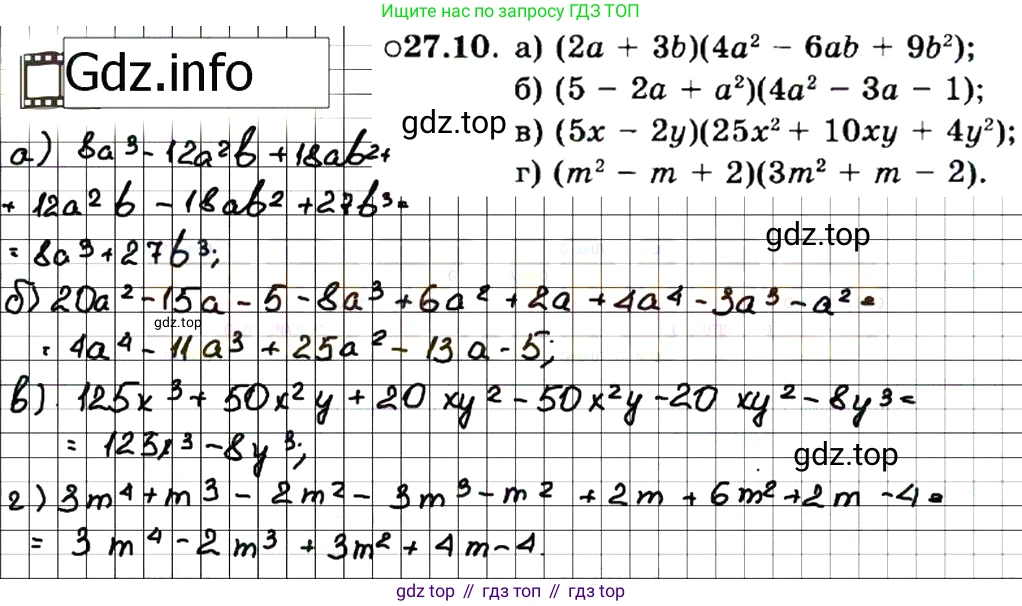 Ищите нас по запросу ГДЗ ТОП
Gdz.info
○27.10. а) (2a + 3b)(4a² − 6ab + 9b²);
б) (5 − 2a + a²)(4a² − 3a − 1);
gdz.top
в) (5x − 2y)(25x² + 10xy + 4y²);
г) (m² − m + 2)(3m² + m − 2).
а) 8a³ - 12a²b + 18ab² +
+ 12a²b - 18ab² + 27b³ =
gdz.top
= 8a³ + 27b³;
б) 20a² - 15a - 5 - 8a³ + 6a² + 2a + 4a⁴ - 3a³ - a² =
gdz.top
= 4a⁴ - 11a³ + 25a² - 13a - 5;
в). 125x³ + 50x²y + 20xy² - 50x²y - 20xy² - 8y³ =
= 125x³ - 8y³;
gdz.top
г) 3m⁴ + m³ - 2m² - 3m³ - m² + 2m + 6m² + 2m - 4 =
= 3m⁴ - 2m³ + 3m² + 4m - 4.
gdz.top // гдз топ // gdz top